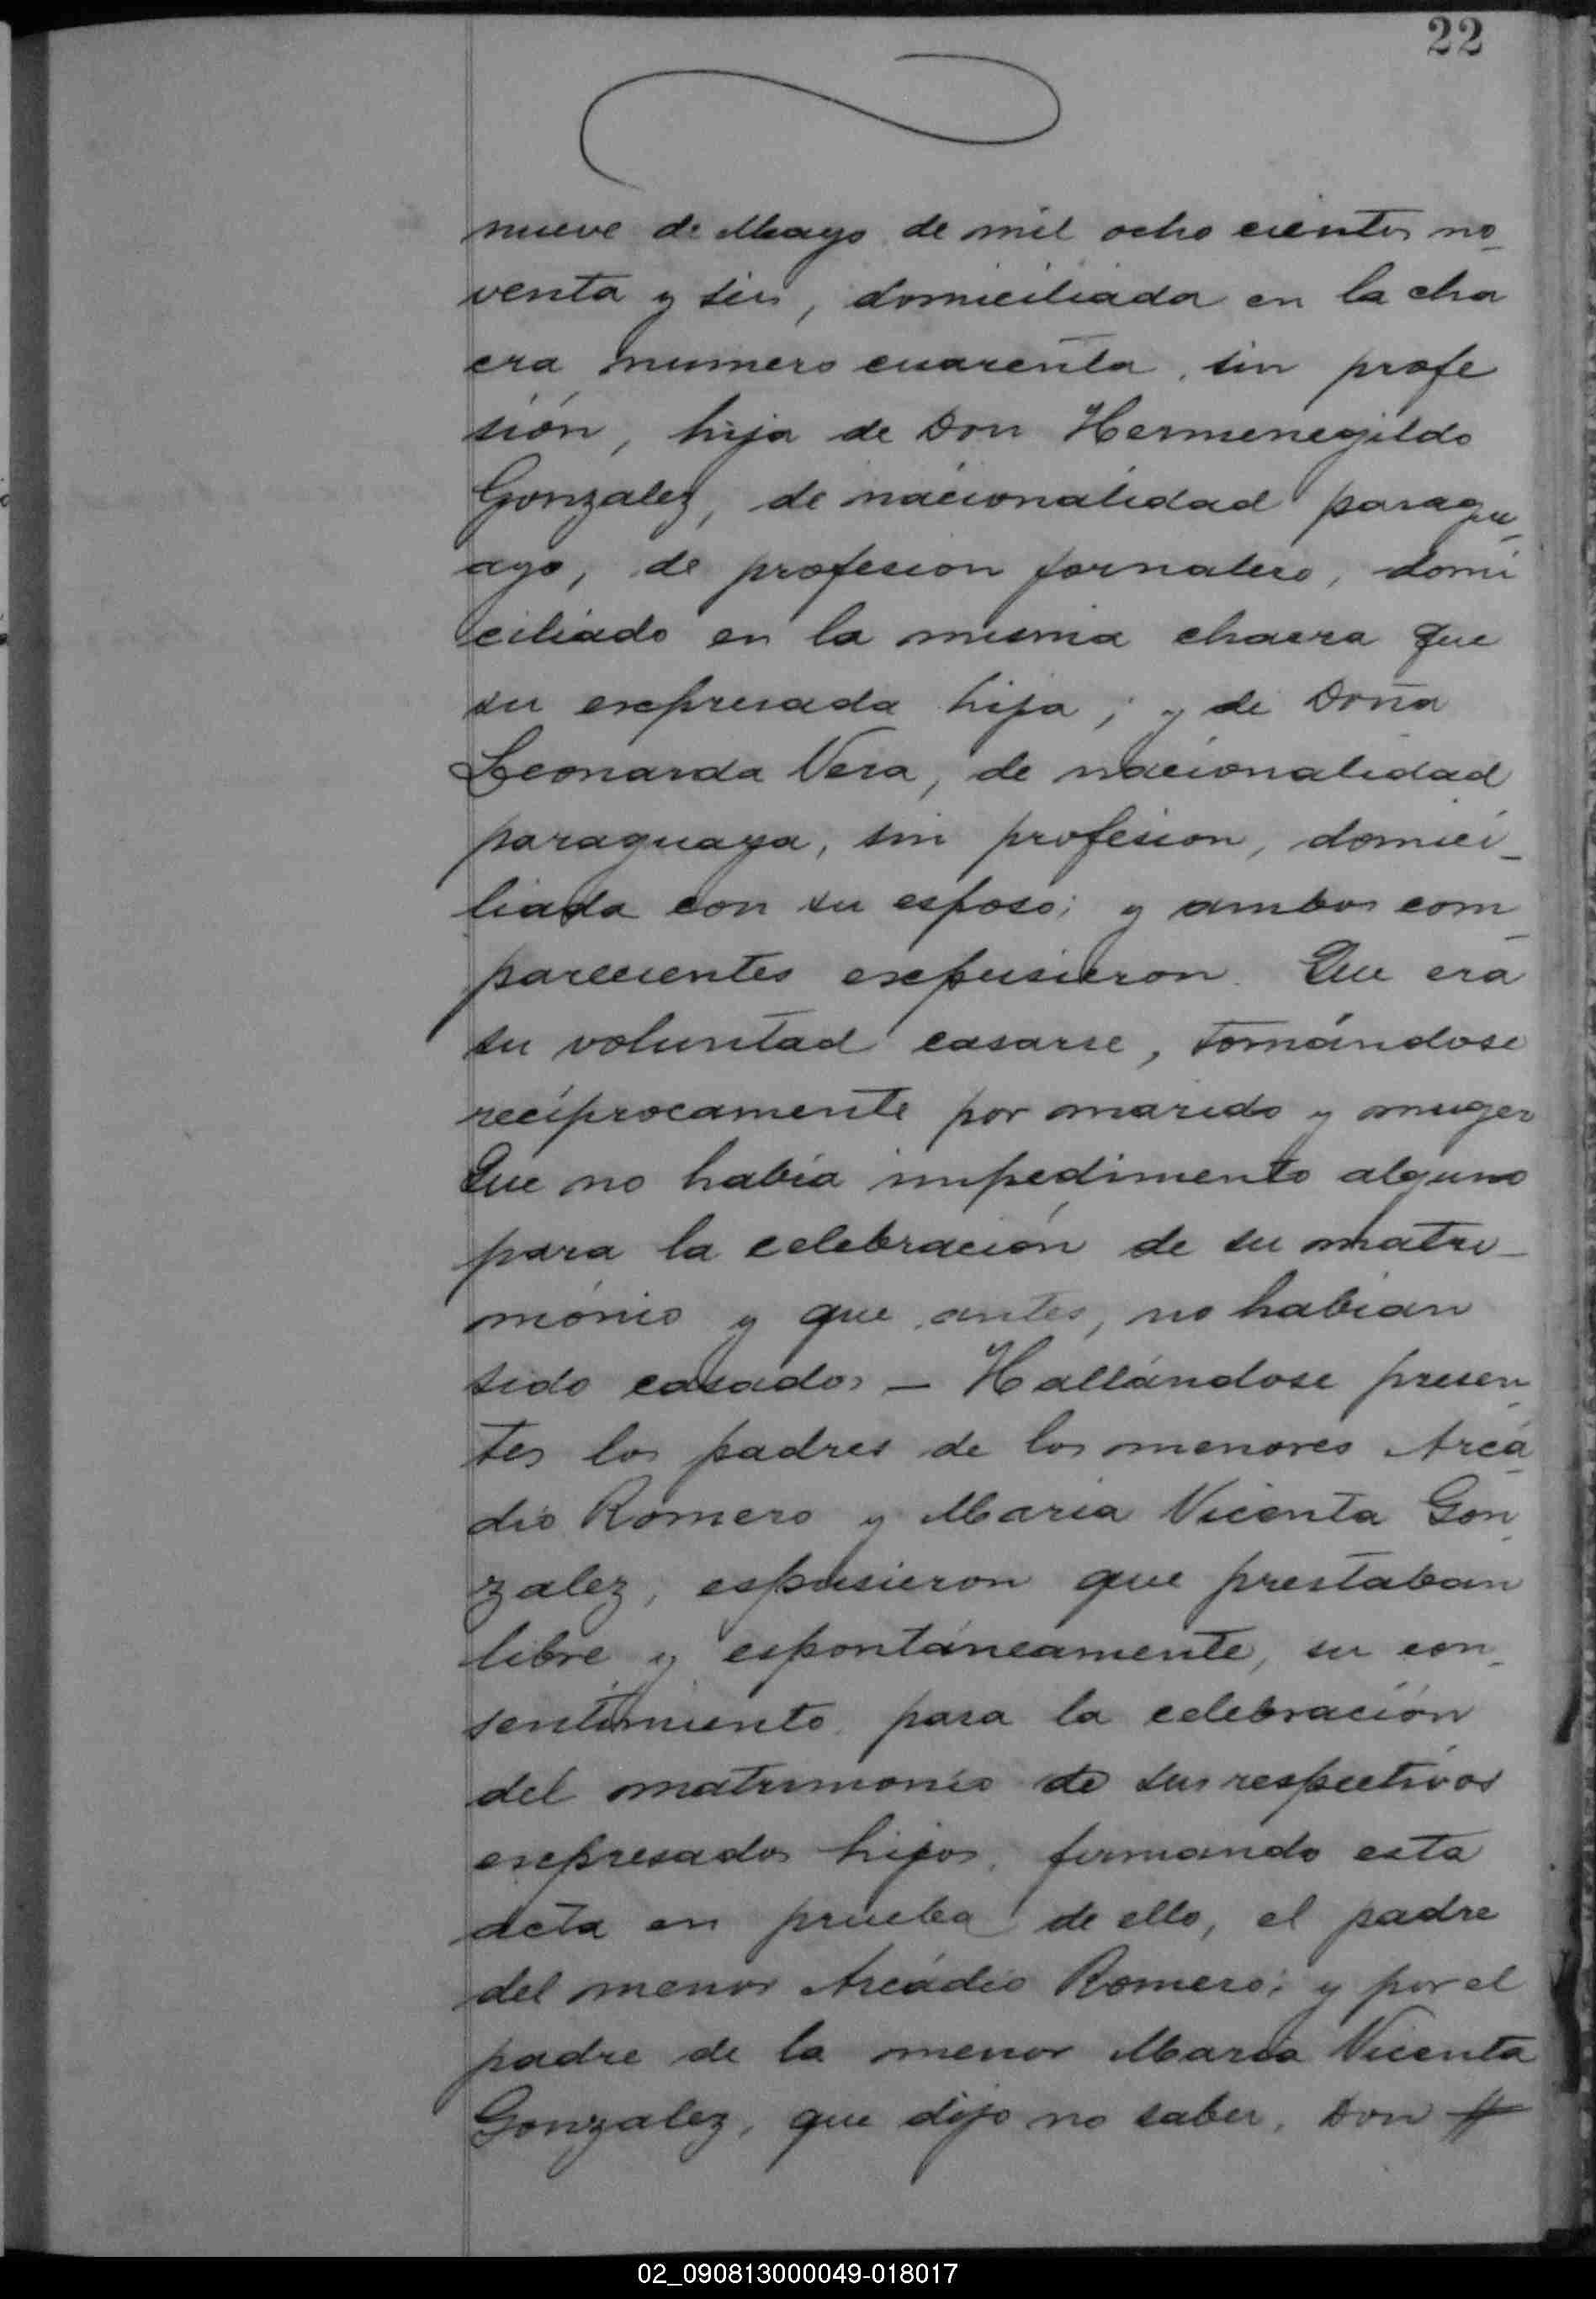 22
nueve de Mayo de mil ocho cientos no_
venta y seis, domiciliada en la cha
cra numero cuarenta, sin profe
sión, hija de Don Hermenegildo
Gonzalez, de nacionalidad paragu_
ayo, de profesion jornalero, domi
ciliado en la misma chacra que
su expresada hija; y de Doña
Leonarda Vera, de nacionalidad
paraguaya, sin profesion, domici_
liada con su esposo; y ambos com_
parecientes expusieron. Que era
su voluntad casarse, tomándose
recíprocamente por marido y muger
Que no había impedimento alguno
para la celebración de su matri_
monio y que antes, no habian
sido casados — Hallándose presen_
tes los padres de los menores Arcá_
dio Romero y Maria Vicenta Gon_
zalez, espusieron que prestaban
libre y espontáneamente, su con_
sentimiento para la celebración
del matrimonio de sus respectivos
expresados hijos, firmando esta
acta en prueba de ello, el padre
del menor Arcádio Romero; y por el
padre de la menor Maria Vicenta
Gonzalez, que dijo no saber, Don
02_090813000049-018017